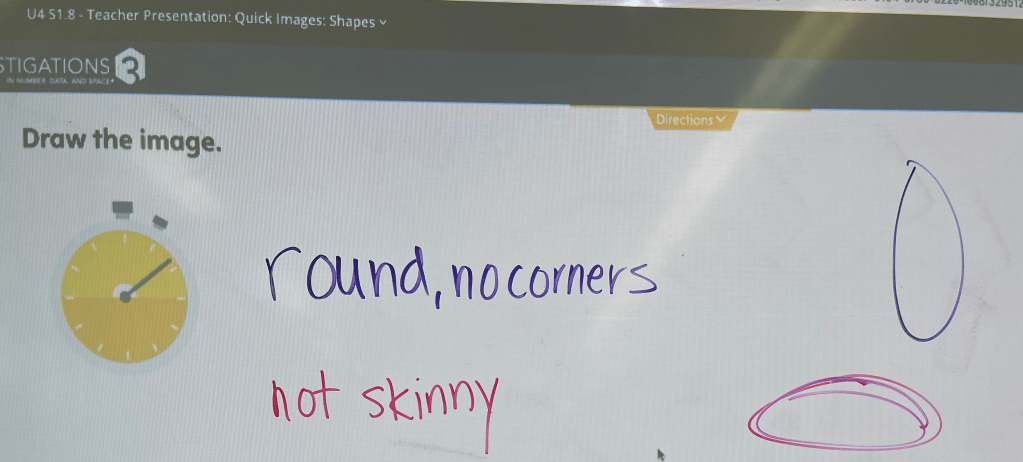 U4 S1.8 - Teacher Presentation: Quick Images: Shapes
STIGATIONS 3
IN NUMBER, DATA, AND SPACE
Directions
Draw the image.
round, no corners
not skinny